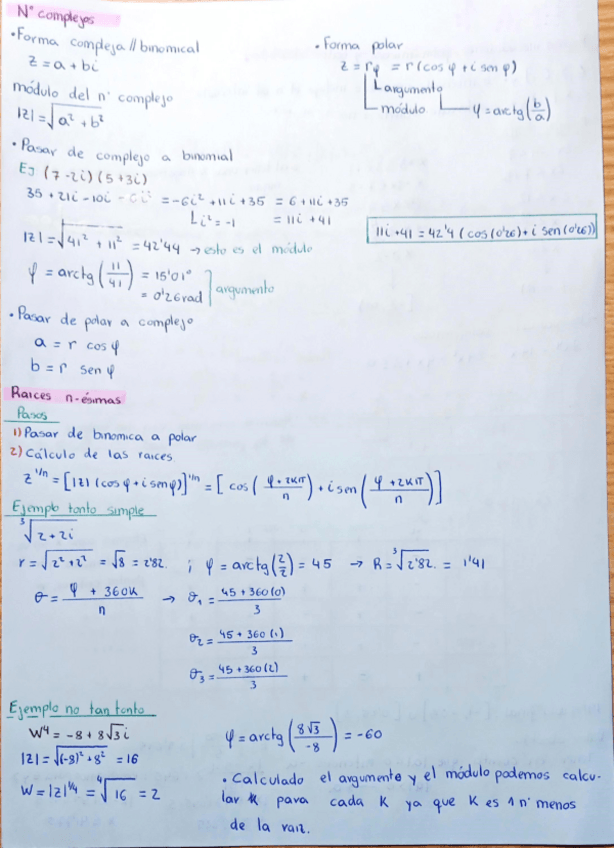 Nº complejos
• Forma compleja // binomical
z = a + bi
módulo del nº complejo
|z| = √(a² + b²)
• Forma polar
z = rφ = r (cos φ + i sen φ)
argumento
módulo
φ = arctg (b/a)
• Pasar de complejo a binomial
Ej (7 - 2i) (5 + 3i)
35 + 21i - 10i - 6i² = -6i² + 11i + 35 = 6 + 11i + 35
i² = -1
= 11i + 41
|z| = √(41² + 11²) = 42'44 → esto es el módulo
11i + 41 = 42'4 (cos (0'26) + i sen (0'26))
φ = arctg (11/41) = 15'01°
= 0'26 rad
argumento
• Pasar de polar a complejo
a = r cos φ
b = r sen φ
Raices n-ésimas
Pasos
1) Pasar de binomica a polar
2) Cálculo de las raices
z^1/n = [|z| (cos φ + i sen φ)]^1/n = [cos ((φ + 2kπ)/n) + i sen ((φ + 2kπ)/n)]
Ejemplo tonto simple
³√(2 + 2i)
r = √(2² + 2²) = √8 = 2'82. ; φ = arctg (2/2) = 45 → R = ³√2'82. = 1'41
θ = (φ + 360k)/n → θ₁ = (45 + 360 (0))/3
θ₂ = (45 + 360 (1))/3
θ₃ = (45 + 360 (2))/3
Ejemplo no tan tonto
W⁴ = -8 + 8√3 i
|z| = √((-8)² + 8²) = 16
W = |z|^1/4 = ⁴√16 = 2
φ = arctg (8√3/-8) = -60
• Calculado el argumento y el módulo podemos calcu-
lar para cada K ya que K es 1 nº menos
de la raiz.